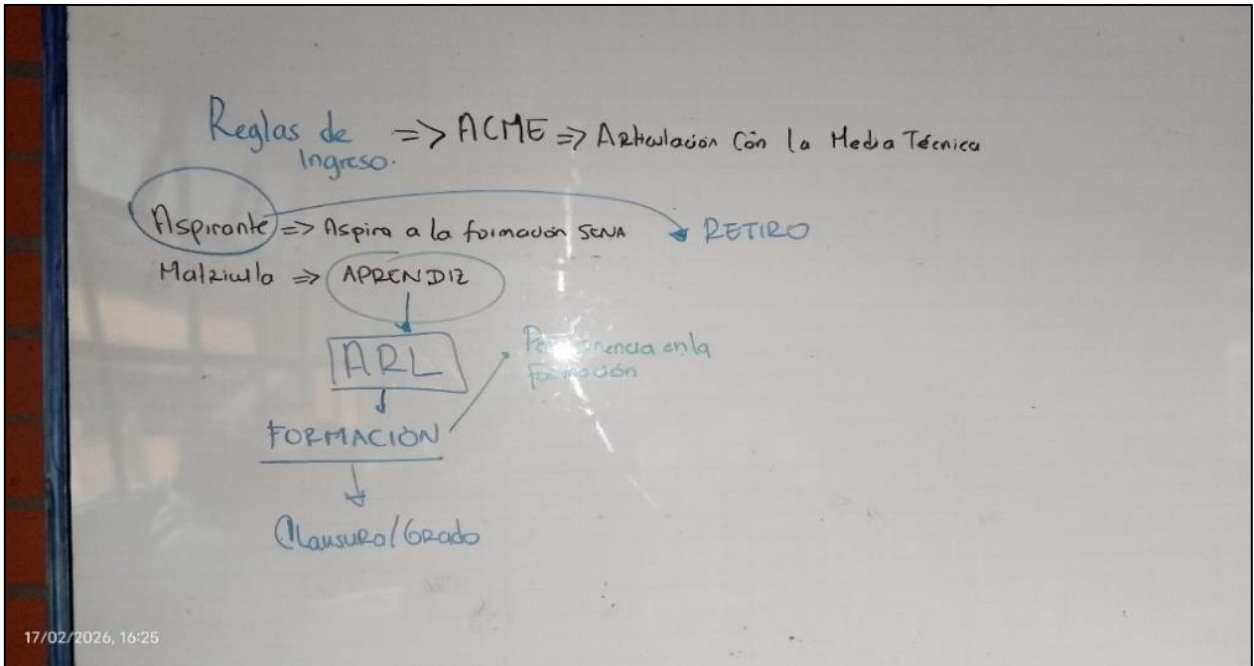 Reglas de => ACME => Articulación Con la Media Técnica
Ingreso.
Aspirante => Aspira a la formación SENA RETIRO
Matricula => APRENDIZ
ARL
Permanencia en la
formación
FORMACIÓN
Clausura/Grado
17/02/2026, 16:25